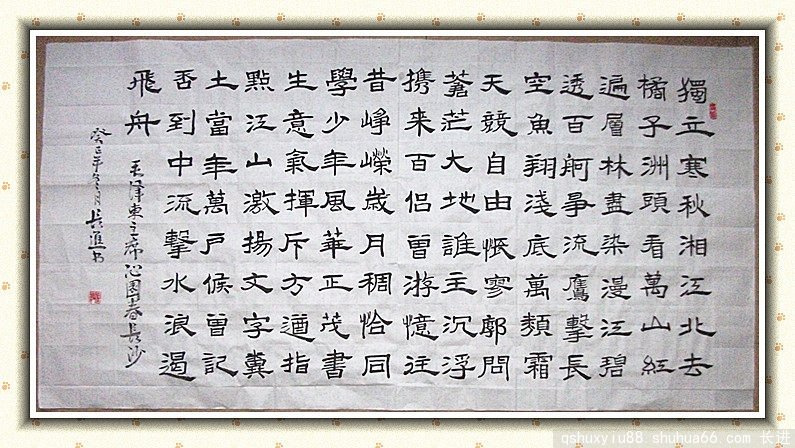 獨立寒秋湘江北去
橘子洲頭看萬山紅
遍層林盡染漫江碧
透百舸爭流鷹擊長
空魚翔淺底萬類霜
天競自由悵寥廓問
蒼茫大地誰主沉浮
携来百侣曾游憶往
昔崢嶸歲月稠恰同
學少年風華正茂書
生意氣揮斥方遒指
點江山激揚文字糞
土當年萬戶侯曾記
否到中流擊水浪遏
飛舟
毛澤東主席沁園春長沙
癸巳年冬月長進书
qshuxyiu88.shuhua66.com 长进